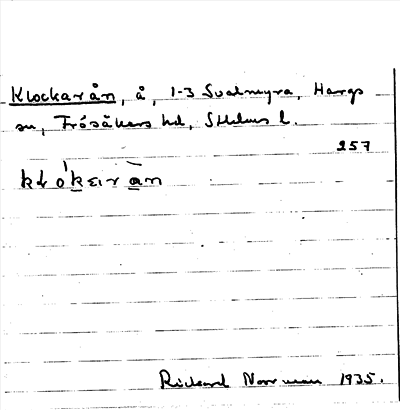 Klockarån, å, 1-3 Svalmyra, Hargs
sn, Frösåkers hd, Sthlms l.
257
Rickard Norrman 1935.